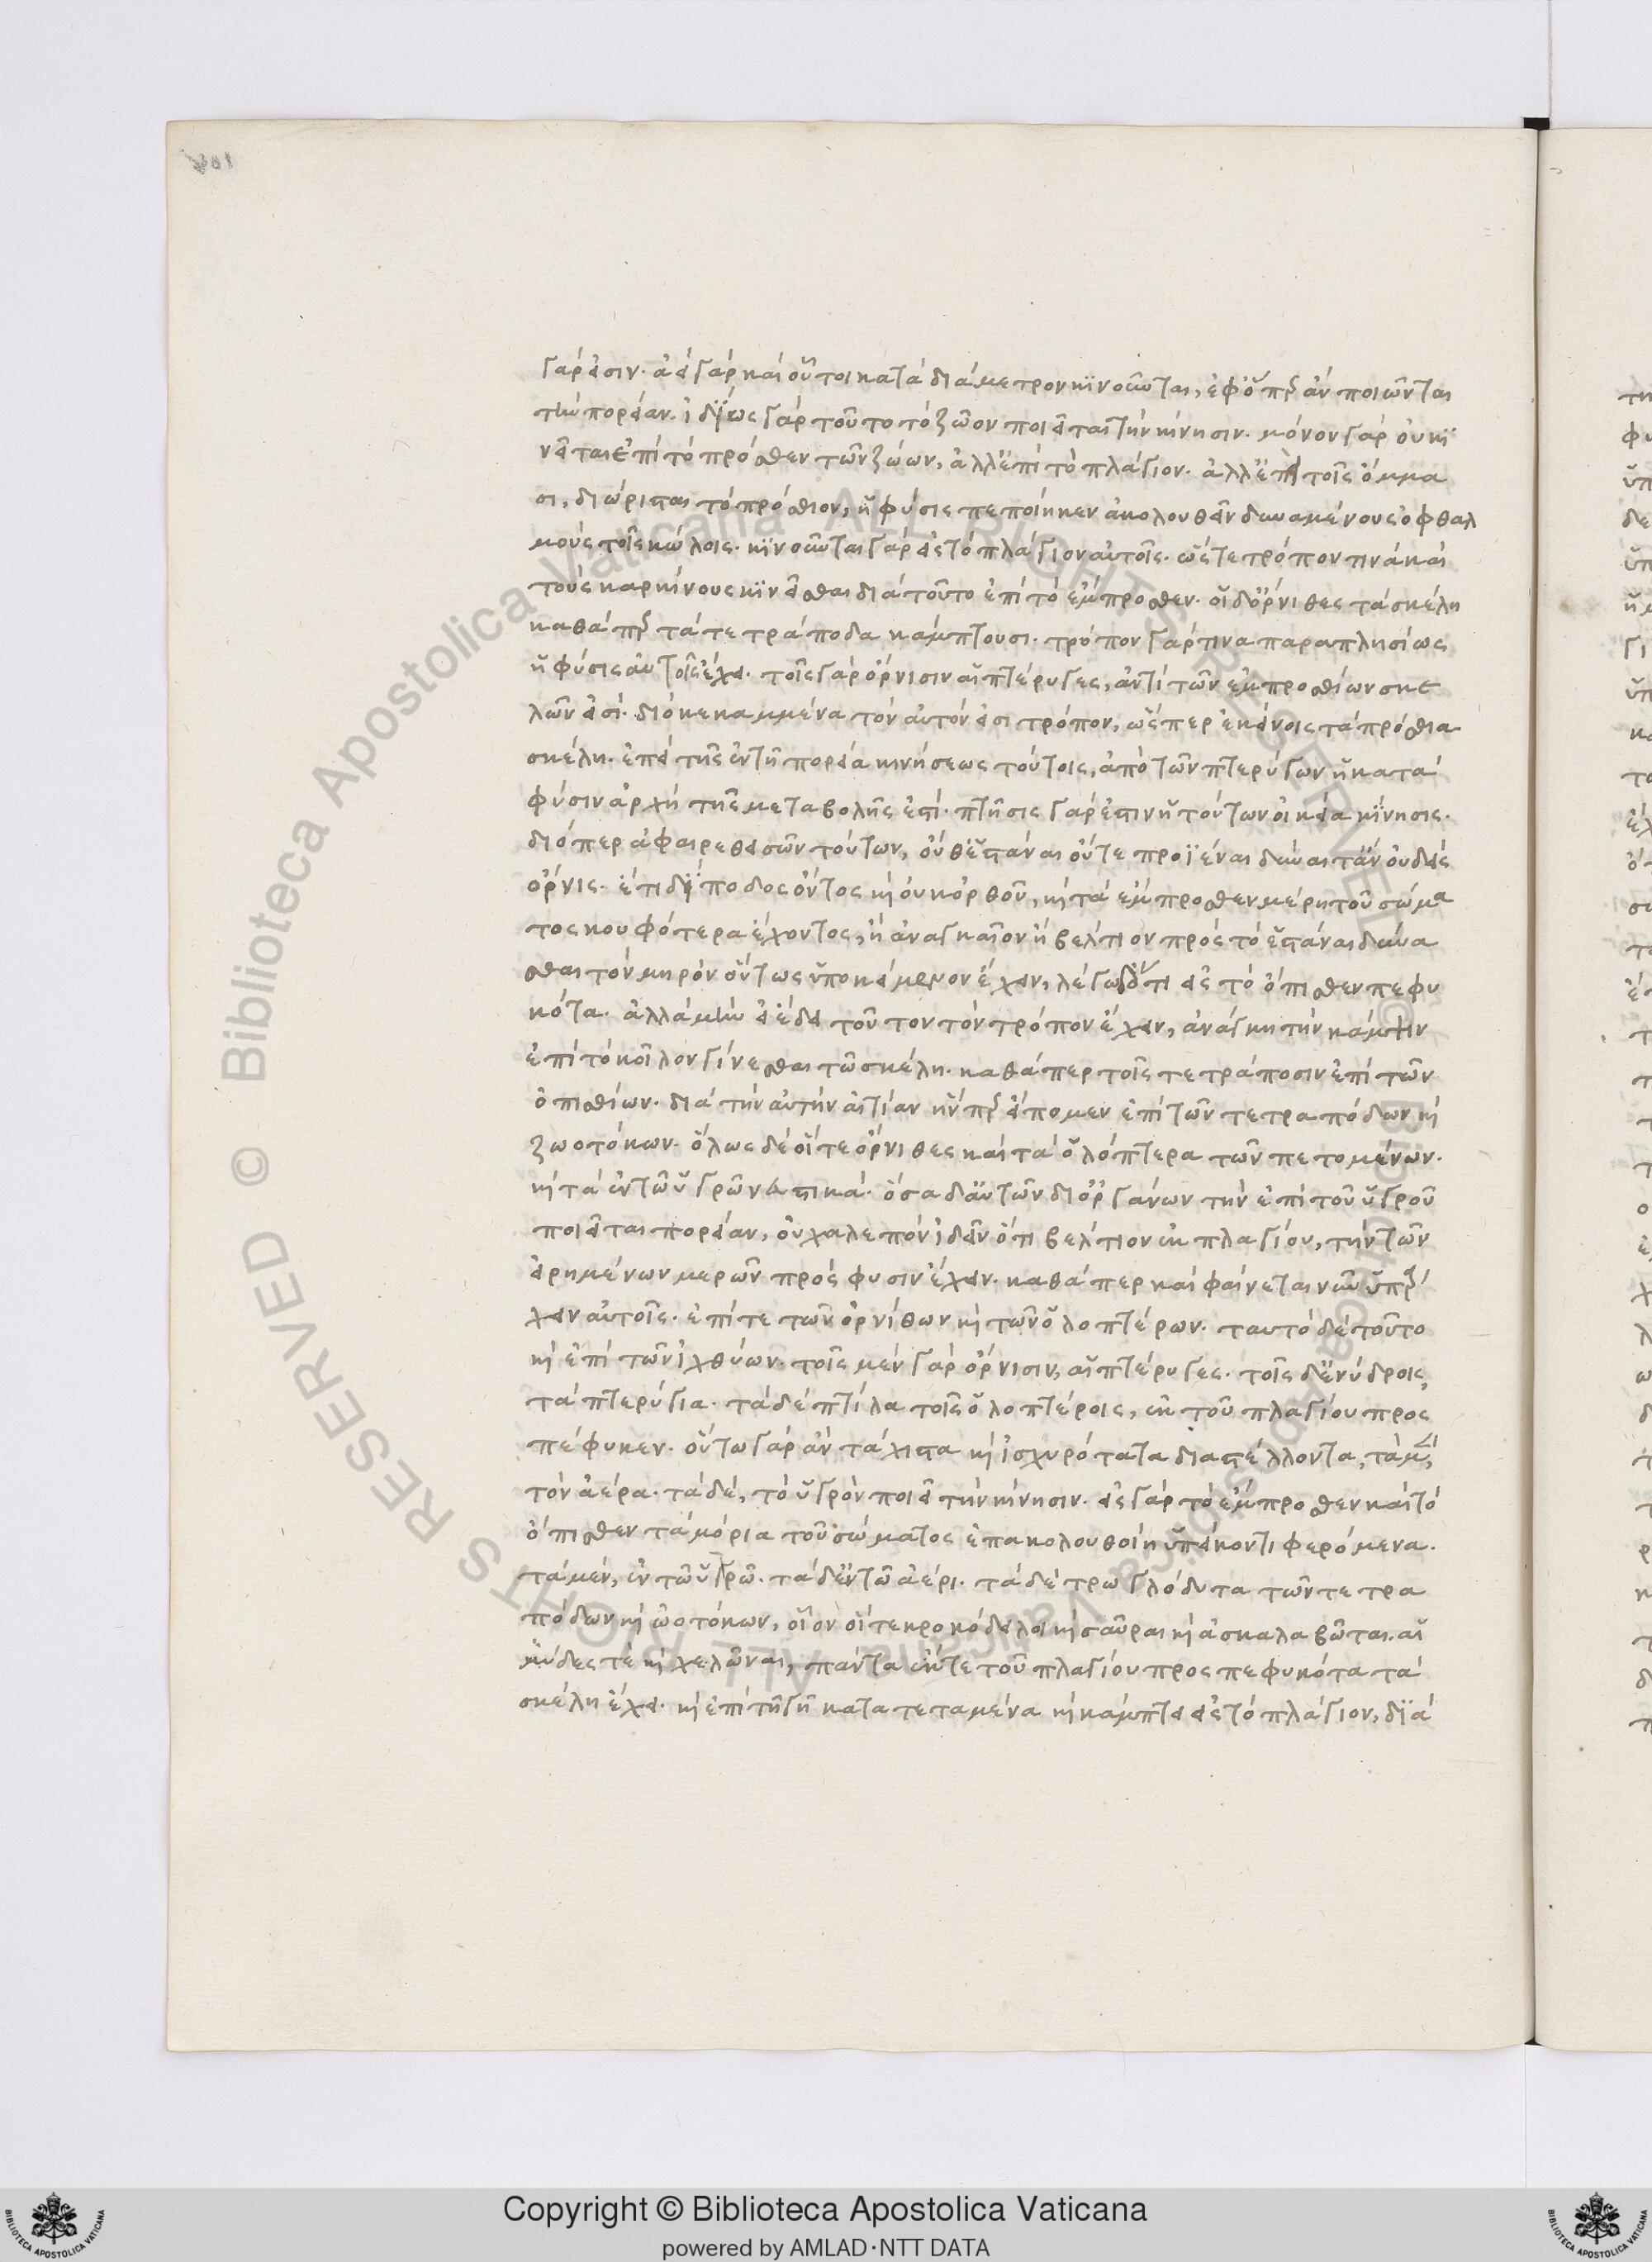 γάρ εἰσιν. ἀεὶ γὰρ καὶ οὗτοι κατὰ διάμετρον κινοῦνται, ἐφ' ὅσπερ ἂν ποιῶνται
τὴν πορείαν. ἰδίως γὰρ τοῦτο τὸ ζῷον ποιεῖται τὴν κίνησιν. μόνον γὰρ οὐ κι
νεῖται ἐπὶ τὸ πρόσθεν τῶν ζώων, ἀλλ' ἐπὶ τὸ πλάγιον. ἀλλ' ἐπεὶ τοῖς ὄμμα
σι, διώρισται τὸ πρόσθιον, ἡ φύσις πεποίηκεν ἀκολουθεῖν δυναμένους ὀφθαλ
μοὺς τοῖς κώλοις. κινοῦνται γὰρ εἰς τὸ πλάγιον αὐτοῖς. ὥστε τρόπον τινὰ καὶ
τοὺς καρκίνους κινεῖσθαι διὰ τοῦτο ἐπὶ τὸ ἔμπροσθεν. οἱ δ' ὄρνιθες τὰ σκέλη
καθάπερ τὰ τετράποδα κάμπτουσι. τρόπον γάρ τινα παραπλησίως
ἡ φύσις αὐτοῖς ἔχει. τοῖς γὰρ ὄρνισιν αἱ πτέρυγες, ἀντὶ τῶν ἐμπροσθίων σκε
λῶν εἰσί. διὸ κεκαμμένα τὸν αὐτόν εἰσι τρόπον, ὥσπερ ἐκείνοις τὰ πρόσθια
σκέλη. ἐπεὶ τῆς ἐν τῇ πορείᾳ κινήσεως τούτοις, ἀπὸ τῶν πτερύγων ἡ κατὰ
φύσιν ἀρχὴ τῆς μεταβολῆς ἐστί. πτῆσις γάρ ἐστιν ἡ τούτων οἰκεία κίνησις.
διόπερ ἀφαιρεθεισῶν τούτων, οὔθ' ἑστάναι οὔτε προϊέναι δύναιτ' ἂν οὐδεὶς
ὄρνις. ἔτι δίποδος ὄντος καὶ οὐκ ὀρθοῦ, καὶ τὰ ἔμπροσθεν μέρη τοῦ σώμα
τος κουφότερα ἔχοντος, ἢ ἀναγκαῖον ἢ βέλτιον πρὸς τὸ ἑστάναι δύνα
σθαι τὸν μηρὸν οὕτως ὑποκείμενον ἔχειν, λέγω δ' ὅτι εἰς τὸ ὄπισθεν πεφυ
κότα. ἀλλὰ μὴν εἰ ἔδει τοῦτον τὸν τρόπον ἔχειν, ἀνάγκη τὴν κάμψιν
ἐπὶ τὸ κοῖλον γίνεσθαι τῶ σκέλη. καθάπερ τοῖς τετράποσιν ἐπὶ τῶν
ὀπισθίων. διὰ τὴν αὐτὴν αἰτίαν ἥνπερ εἴπομεν ἐπὶ τῶν τετραπόδων καὶ
ζωοτόκων. ὅλως δὲ οἵ τε ὄρνιθες καὶ τὰ ὁλόπτερα τῶν πετομένων.
καὶ τὰ ἐν τῷ ὑγρῷ νευστικά. ὅσα δ' αὐτῶν δι' ὀργάνων τὴν ἐπὶ τοῦ ὑγροῦ
ποιεῖται πορείαν, οὐ χαλεπὸν ἰδεῖν ὅτι βέλτιον ἐκ πλαγίου, τὴν τῶν
εἰρημένων μερῶν πρόσφυσιν ἔχειν. καθάπερ καὶ φαίνεται νῦν ὑπάρ
χειν αὐτοῖς. ἐπί τε τῶν ὀρνίθων καὶ τῶν ὁλοπτέρων. ταυτὸ δὲ τοῦτο
καὶ ἐπὶ τῶν ἰχθύων. τοῖς μὲν γὰρ ὄρνισιν, αἱ πτέρυγες. τοῖς δ' ἐνύδροις,
τὰ πτερύγια. τὰ δὲ πτίλα τοῖς ὁλοπτέροις, ἐκ τοῦ πλαγίου προς
πέφυκεν. οὕτω γὰρ ἂν τάχιστα καὶ ἰσχυρότατα διαστέλλοντα, τὰ μὲν,
τὸν ἀέρα. τὰ δέ, τὸ ὑγρὸν ποιεῖ τὴν κίνησιν. εἰς γὰρ τὸ ἔμπροσθεν καὶ τὸ
ὄπισθεν τὰ μόρια τοῦ σώματος ἐπακολουθοίη ὑπείκοντι φερόμενα.
τὰ μέν, ἐν τῷ ὑγρῷ. τὰ δ' ἐν τῷ ἀέρι. τὰ δὲ τρωγλόδυτα τῶν τετρα
πόδων καὶ ὠοτόκων, οἷον οἵ τε κροκόδειλοι καὶ σαῦραι καὶ ἀσκαλαβῶται. αἱ
μύδες τὲ καὶ χελῶναι, πάντα ἔκ τε τοῦ πλαγίου προσπεφυκότα τὰ
σκέλη ἔχει. καὶ ἐπὶ τῇ γῇ κατατεταμένα καὶ κάμπτει εἰς τὸ πλάγιον, διὰ
Copyright © Biblioteca Apostolica Vaticana
powered by AMLAD·NTT DATA